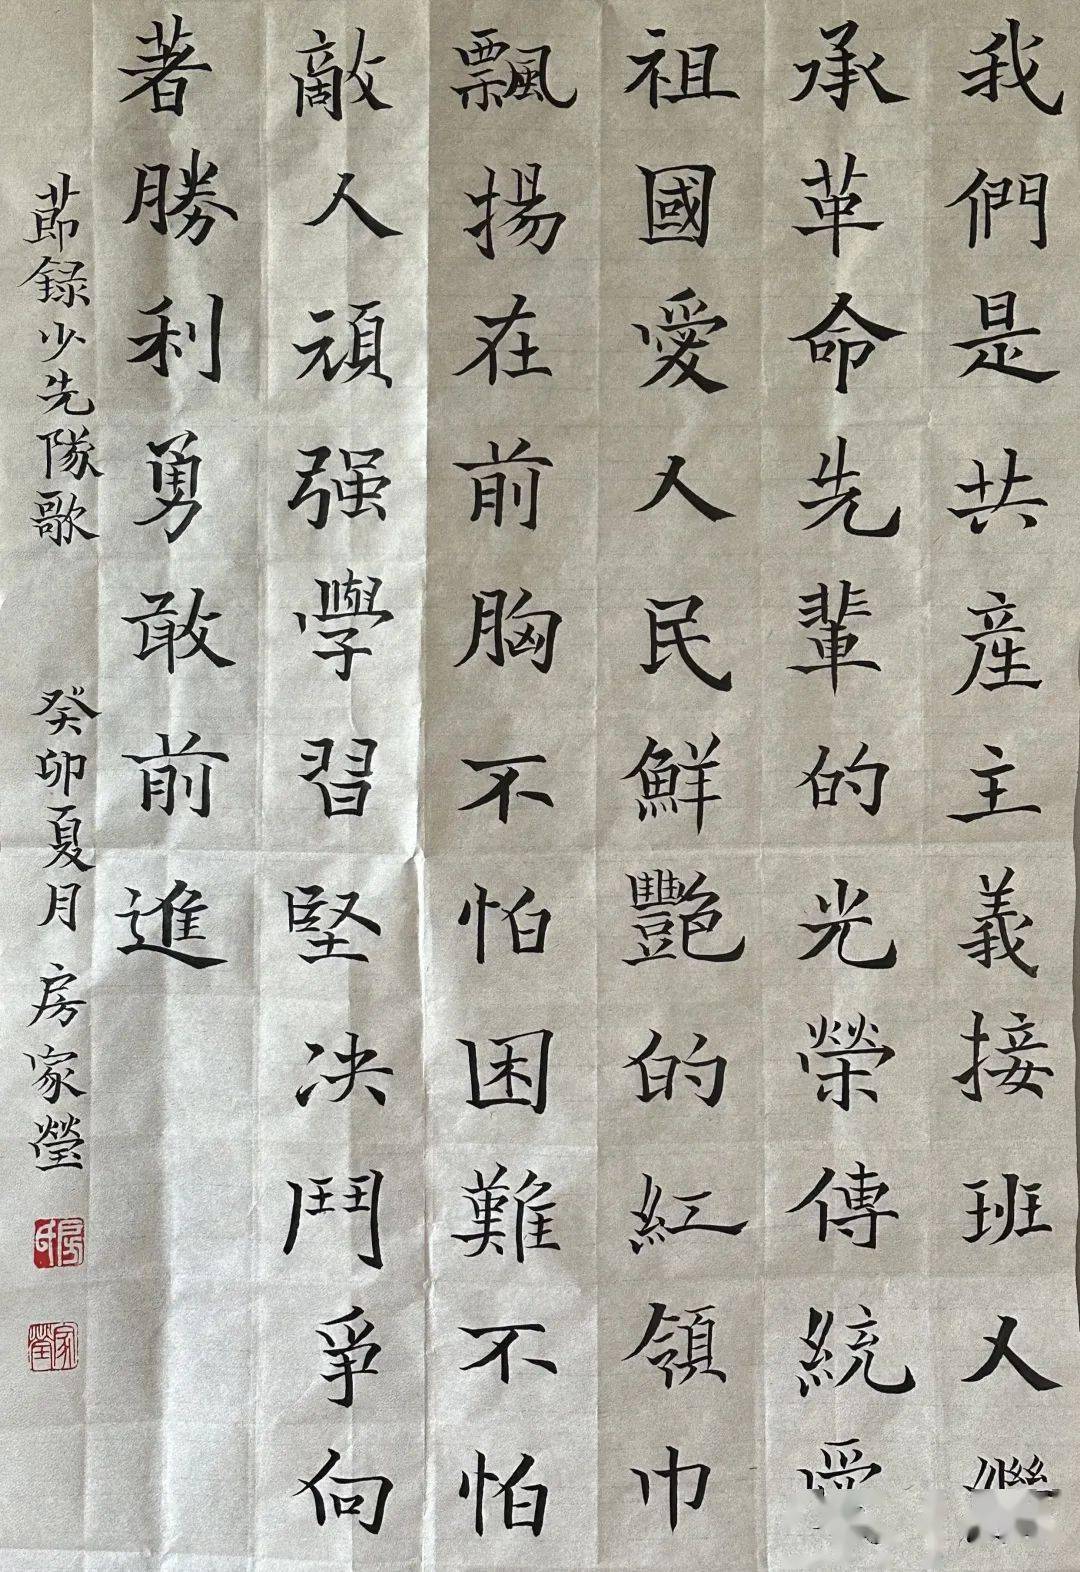 我們是共產主義接班人繼
承革命先輩的光榮傳統愛
祖國愛人民鮮艷的紅領巾
飄揚在前胸不怕困難不怕
敵人頑强學習堅决鬥爭向
著勝利勇敢前進
節録少先隊歌 癸卯夏月 房家瑩
房氏
家瑩